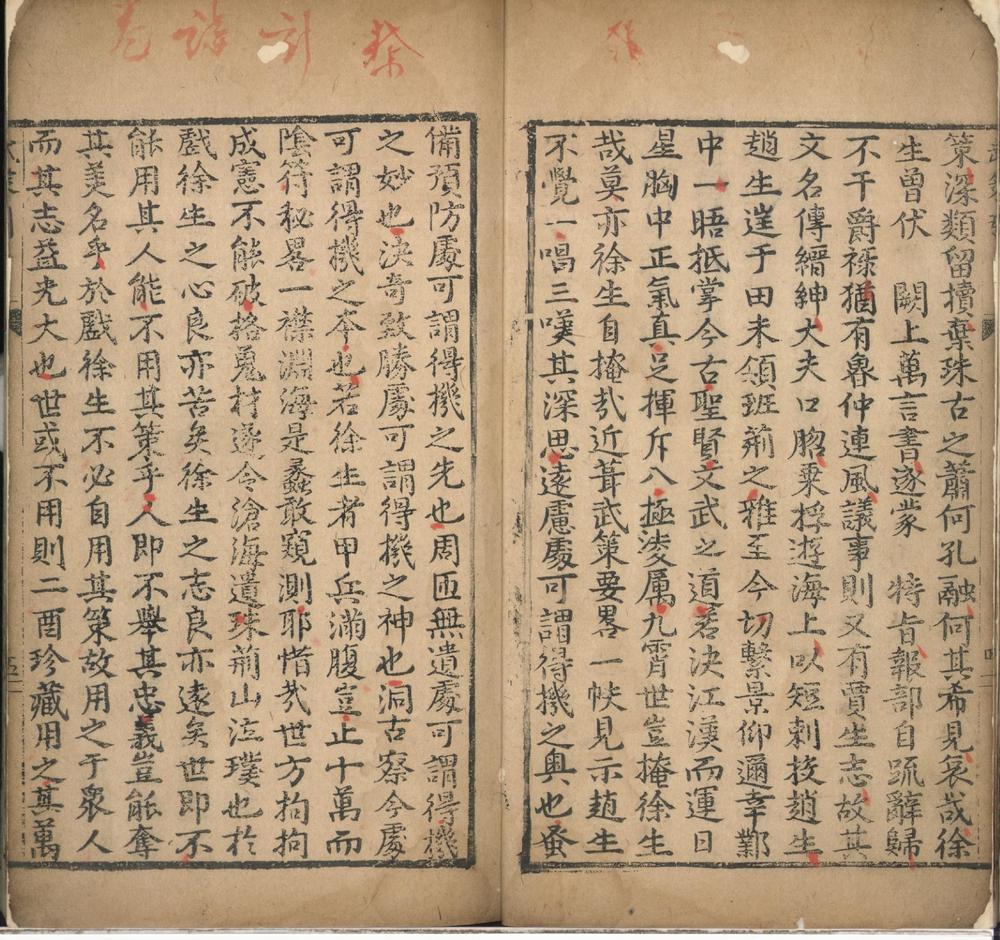 策深類留擯棄珠古之蕭何孔融何其希見㢤哉徐
生曾伏　闕上萬言書遂蒙　特旨報部自疏辭歸
不干爵祿猶有魯仲連風議事則又有賈生志故其
文名傳縉紳大夫口膾粟桴遊海上以短剌投趙生
趙生逆于田未領班荊之雅至今切繫景仰邇幸鄞
中一晤抵掌今古聖賢文武之道若決江漢而運日
星胸中正氣真足揮斥八極淩厲九霄世豈掩徐生
哉莫亦徐生自掩㢤近葺武策要畧一帙見示趙生
不覺一唱三嘆其深思遠慮處可謂得機之奧也蚤
備預防處可謂得機之先也周匝無遺處可謂得機
之妙也決奇致勝處可謂得機之神也洞古察今處
可謂得機之夲也若徐生者甲兵滿腹豈止十萬而
陰符秘畧一襟淵海是蠡敢窺測耶惜㢤世方拘拘
成憲不能破格蒐材遂令滄海遺珠荊山泣璞也於
戲徐生之心良亦苦矣徐生之志良亦遠矣世即不
能用其人能不用其策乎人即不舉其忠義豈能奪
其美名乎於戲徐生不必自用其策故用之于衆人
而其志益光大也世或不用則二酉珍藏用之其萬